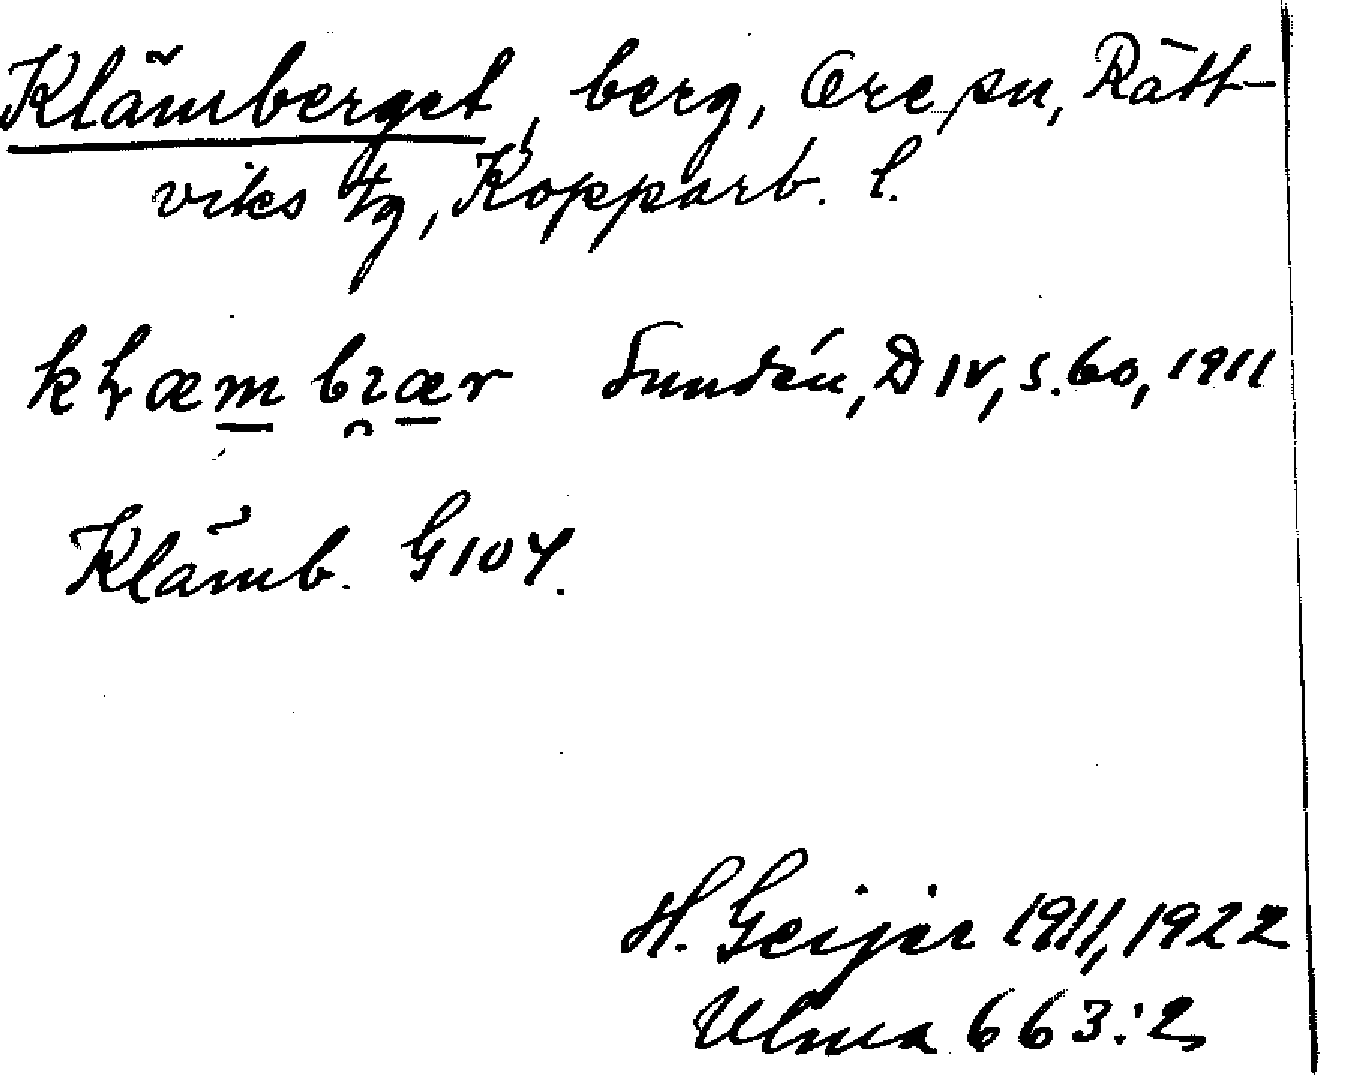 Klämberget, berg, Ore sn, Rätt-
viks tg, Kopparb. l.
Sundén, D IV, s. 60, 1911
Klämb. G 104.
H. Geijer 1911, 1922
Ulma 663:2